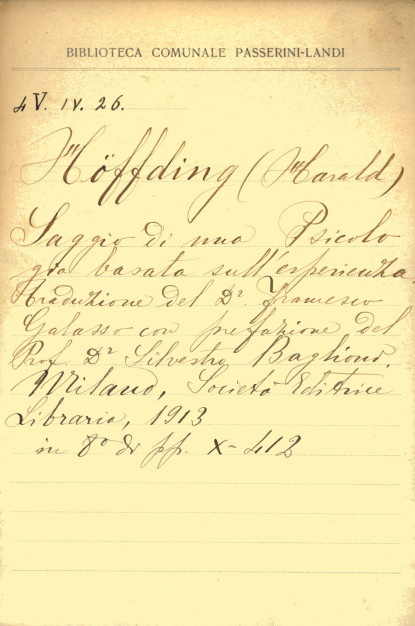 BIBLIOTECA COMUNALE PASSERINI-LANDI
4 V. IV. 26.
Höffding (Harald)
Saggio di una Psicolo
gia basata sull'esperienza.
Traduzione del Dr. Francesco
Galasso con prefazione del
Prof. Dr Silvestro Baglioni.
Milano, Società Editrice
Libraria, 1913
in 8° di pp. X-412